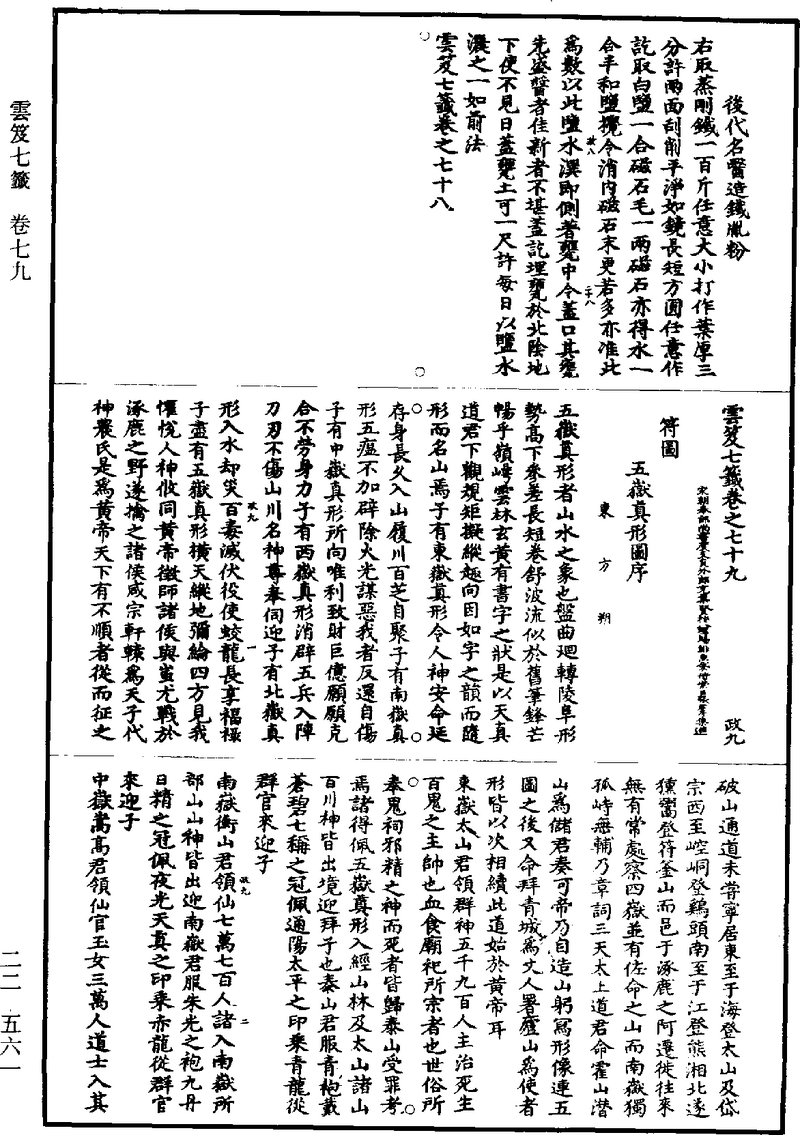 雲笈七籤　卷七九
後代名醫造鐵胤粉
右取蒸剛鐵一百斤任意大小打作葉厚三
分許兩面刮削平淨如鏡長短方圓任意作
訖取白鹽一合磁石毛一兩磁石亦得水一
合半和鹽攪令消內磁石末更若多亦准此
爲數以此鹽水潠即側著甕中令蓋口其甕
先盛醬者佳新者不堪蓋訖埋甕於北陰地
下使不見日蓋甕土可一尺許每日以鹽水
潠之一如前法
雲笈七籤卷之七十八
雲笈七籤卷之七十九　政九
符圖
五嶽真形圖序
東方朔
五嶽真形者山水之象也盤曲迴轉陵阜形
勢高下參差長短卷舒波流似於舊筆鋒芒
暢乎嶺崿雲林玄黃有書字之狀是以天真
道君下觀規矩擬縱趣向因如字之韻而隨
形而名山焉子有東嶽真形令人神安命延
存身長久入山履川百芝自聚子有南嶽真
形五瘟不加辟除火光謀惡我者反還自傷
子有中嶽真形所向唯利致財巨億願願克
合不勞身力子有西嶽真形消辟五兵入陣
刀刃不傷山川名神尊奉伺迎子有北嶽真
形入水却災百毒滅伏役使蛟龍長享福祿
子盡有五嶽真形橫天縱地彌綸四方見我
懽悅人神攸同黃帝徵師諸侯與蚩尤戰於
涿鹿之野遂擒之諸侯咸宗軒轅爲天子代
神農氏是爲黃帝天下有不順者從而征之
破山通道未嘗寧居東至于海登太山及岱
宗西至崆峒登鷄頭南至于江登熊湘北逐
獯鬻登符釜山而邑于涿鹿之阿遷徙往來
無有常處察四嶽並有佐命之山而南嶽獨
孤峙無輔乃章詞三天太上道君命霍山潛
山爲儲君奏可帝乃自造山躬寫形像連五
圖之後又命拜青城爲丈人署廬山爲使者
形皆以次相續此道始於黃帝耳
東嶽太山君領群神五千九百人主治死生
百鬼之主帥也血食廟祀所宗者也世俗所
奉鬼祠邪精之神而死者皆歸泰山受罪考
焉諸得佩五嶽真形入經山林及太山諸山
百川神皆出境迎拜子也泰山君服青袍戴
蒼碧七稱之冠佩通陽太平之印乘青龍從
群官來迎子
南嶽衡山君領仙七萬七百人諸入南嶽所
部山山神皆出迎南嶽君服朱光之袍九丹
日精之冠佩夜光天真之印乘赤龍從群官
來迎子
中嶽嵩高君領仙官玉女三萬人道士入其
二二・五六一